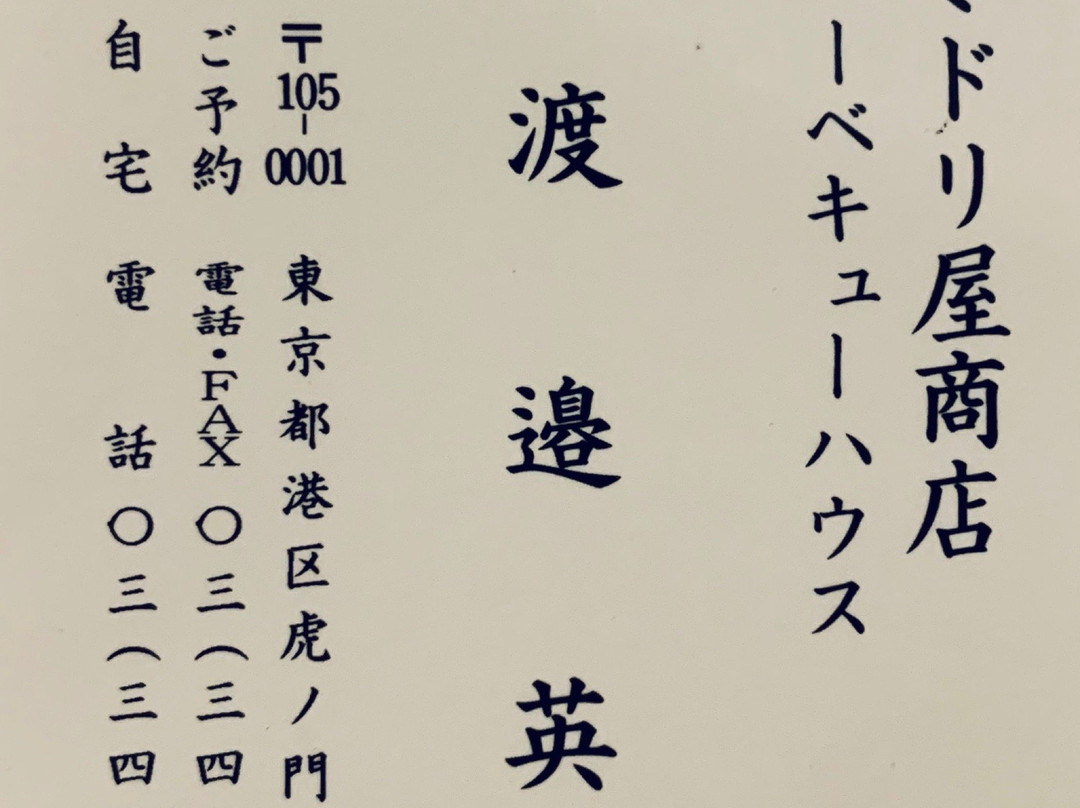 ドリ屋商店
ーベキューハウス
渡邉英
〒105-0001 東京都港区虎ノ門
ご予約 電話・FAX 〇三(三四
自宅 電話 〇三(三四